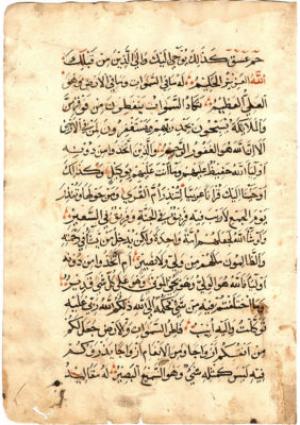 حم عسق كذلك يوحي اليك والي الذين من قبلك
الله العزيز الحكيم له ما في السموات وما في الارض وهو
العلي العظيم تكاد السموات يتفطرن من فوقهن
والملائكة يسبحون بحمد ربهم ويستغفرون لمن في الارض
الا ان الله هو الغفور الرحيم والذين اتخذوا من دونه
اوليآء الله حفيظ عليهم وما انت عليهم بوكيل وكذلك
اوحينا اليك قرانا عربيا لتنذر ام القري ومن حولها وتنذر
يوم الجمع لا ريب فيه فريق في الجنة وفريق في السعير
ولو شآء الله لجعلهم امة واحدة ولكن يدخل من يشآء في رحمته
والظالمون مالهم من ولي ولا نصير ام اتخذوا من دونه
اوليآء فالله هو الولي وهو يحيي الموتي وهو علي كل شئ قدير
وما اختلفتم فيه من شئ فحكمه الي الله ذلكم الله ربي عليه
توكلت واليه انيب فاطر السموات والارض جعل لكم
من انفسكم ازواجا ومن الانعام ازواجا يذرؤكم
فيه ليس كمثله شئ وهو السميع البصير له مقاليد